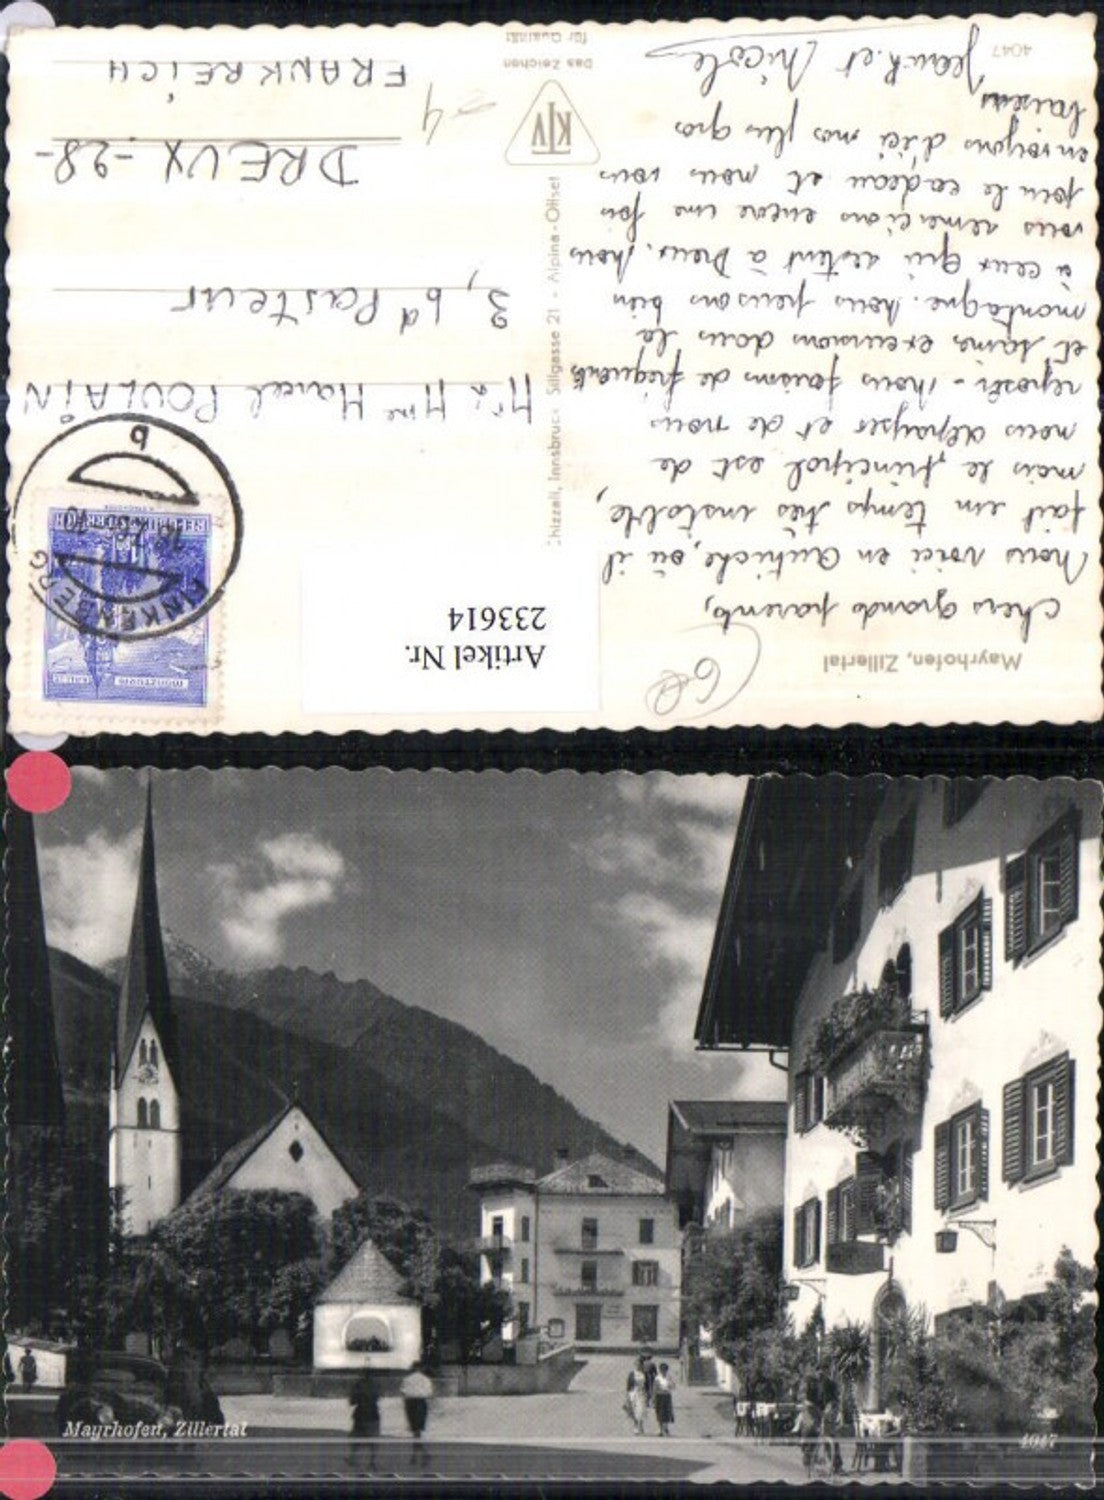 Mayrhofen, Zillertal
Chers grands parents,
Nous voici en Autriche, où il
fait un temps très instable,
mais le principal est de
nous dépayser et de nous
reposer. Nous faisons de fréquents
et sains excursions dans la
montagne. Nous pensons bien
à ceux qui restent à Dreux. Nous
vous remercions encore une fois
pour le cadeau et nous vous
envoyons d'ici nos plus gros
baisers
Jean et Nicole
4047
Artikel Nr.
233614
Chizzali, Innsbruck Sillgasse 21 - Alpina-Offset
KTV
Das Zeichen
für Qualität
REPUBLIK ÖSTERREICH
FINKENBERG
b
Mr & Mme Marcel POULAIN
3, bd Pasteur
DREUX -28-
FRANKREICH
Mayrhofen, Zillertal
4047